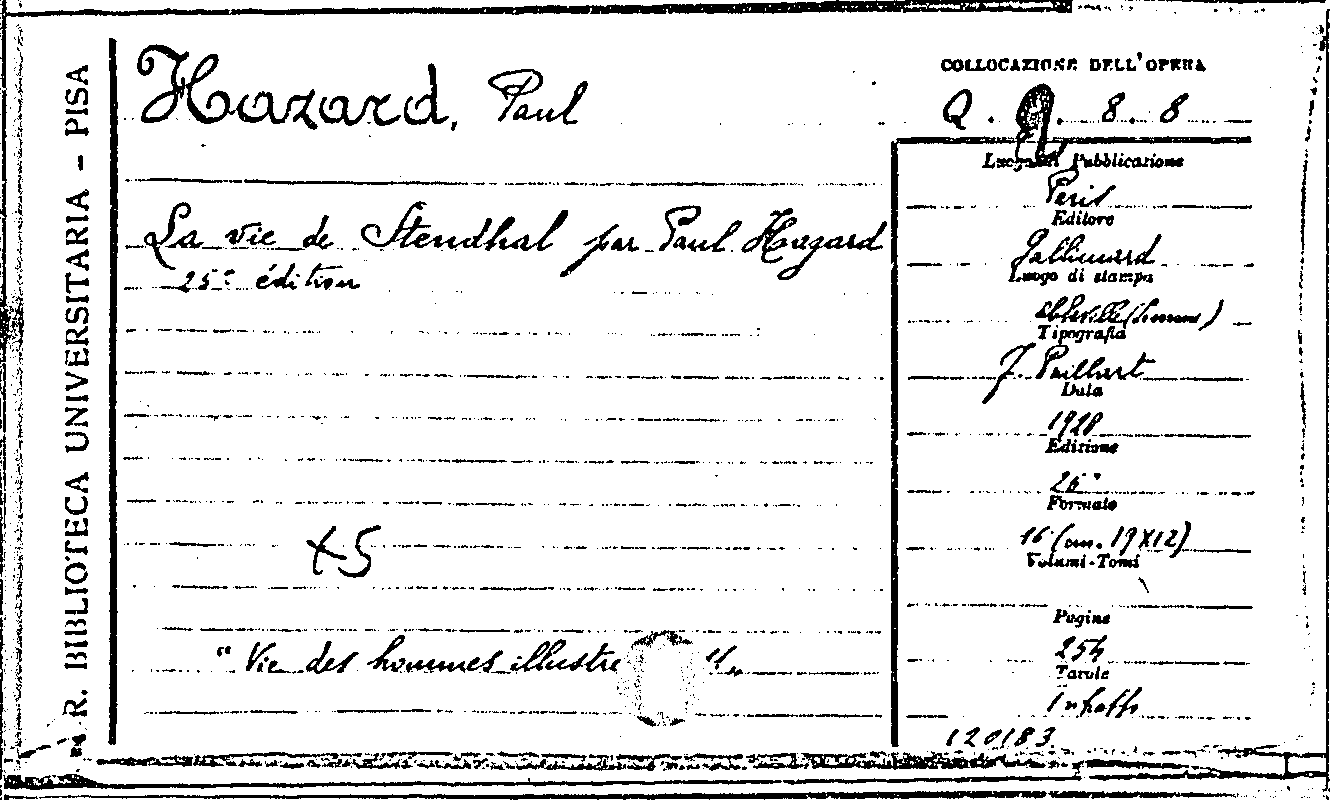 R. BIBLIOTECA UNIVERSITARIA - PISA
Hazard, Paul
La vie de Stendhal par Paul Hazard
25ᵉ édition
X5
" Vie des hommes illustre
COLLOCAZIONE DELL'OPERA
Q. 8. 8
Luogo di Pubblicazione
Paris
Editore
Gallimard
Luogo di stampa
Abbeville (Somme)
Tipografia
F. Paillart
Data
1928
Edizione
Formato
16 (cm. 19X12)
Volumi-Tomi
Pagine
254
Tavole
120183